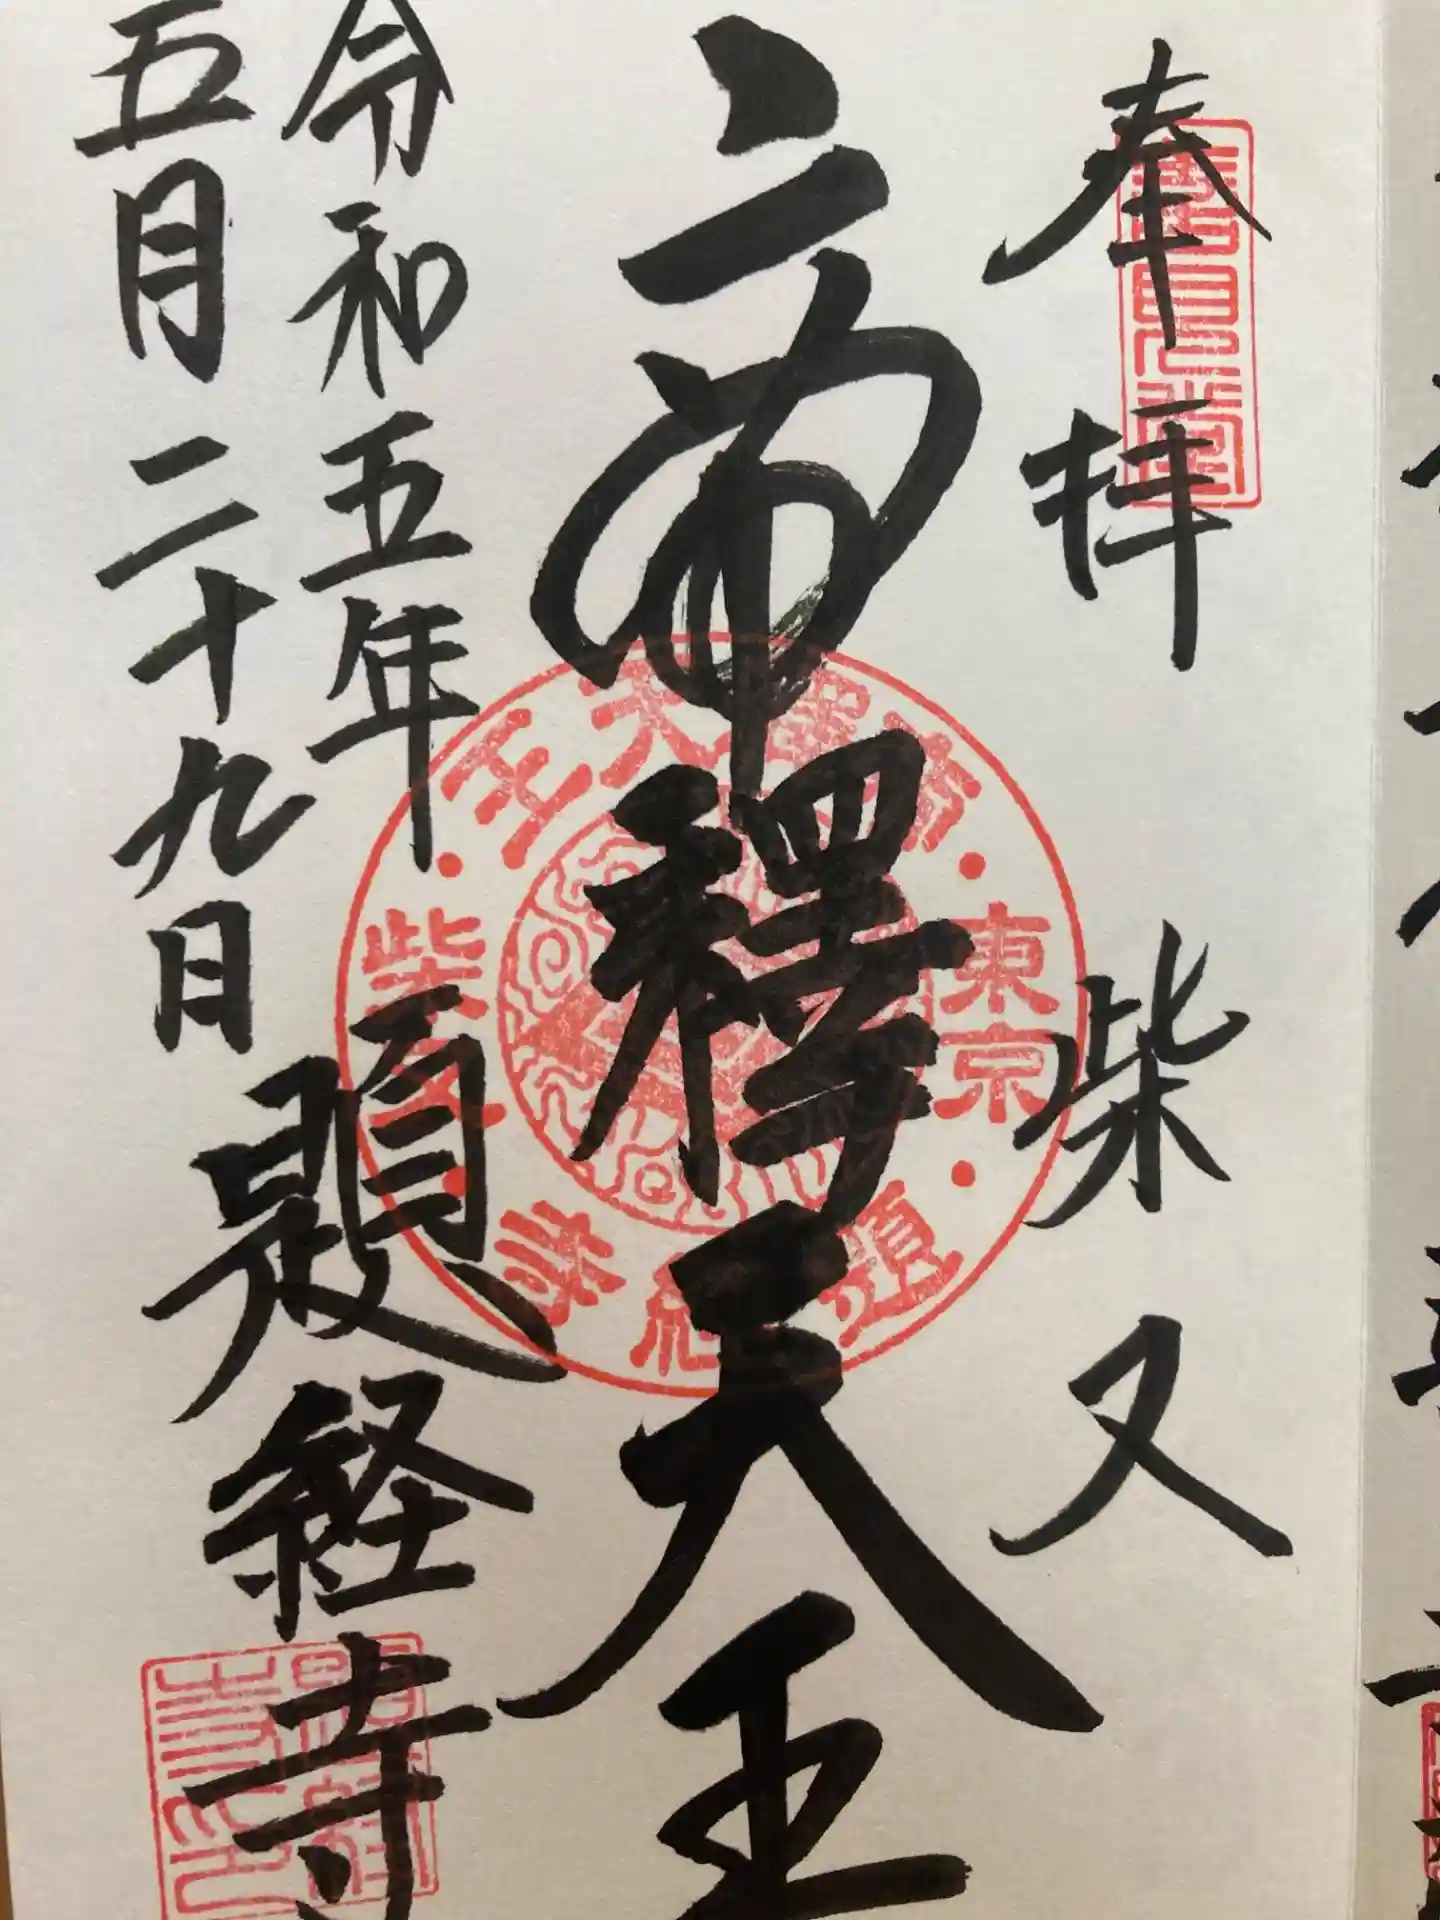 奉拝
柴又
帝釋天王
令和五年
五月二十九日
題経寺
東京
帝釋天王
柴又
題経寺